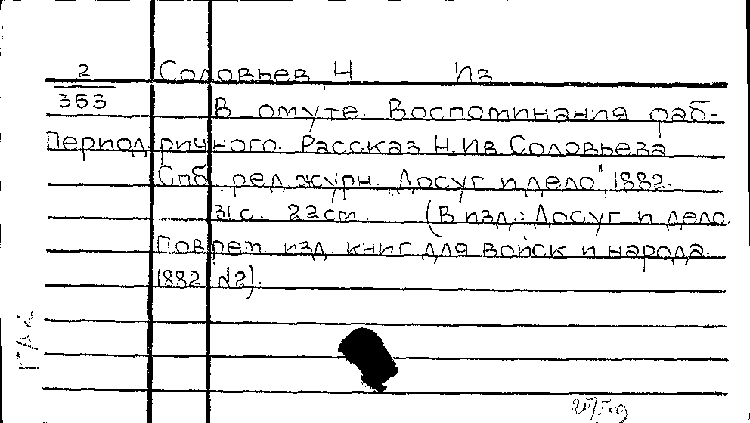 2 Соловьев, Н Из
353
В омуте. Воспоминания фаб-
Период ричного. Рассказ Н. Ив. Соловьева
Спб. ред. журн. "Досуг и дело", 1882.
31 с. 22 см. (В изд.: Досуг и дело
Поврем. изд. книг для войск и народа.
1882 №2).